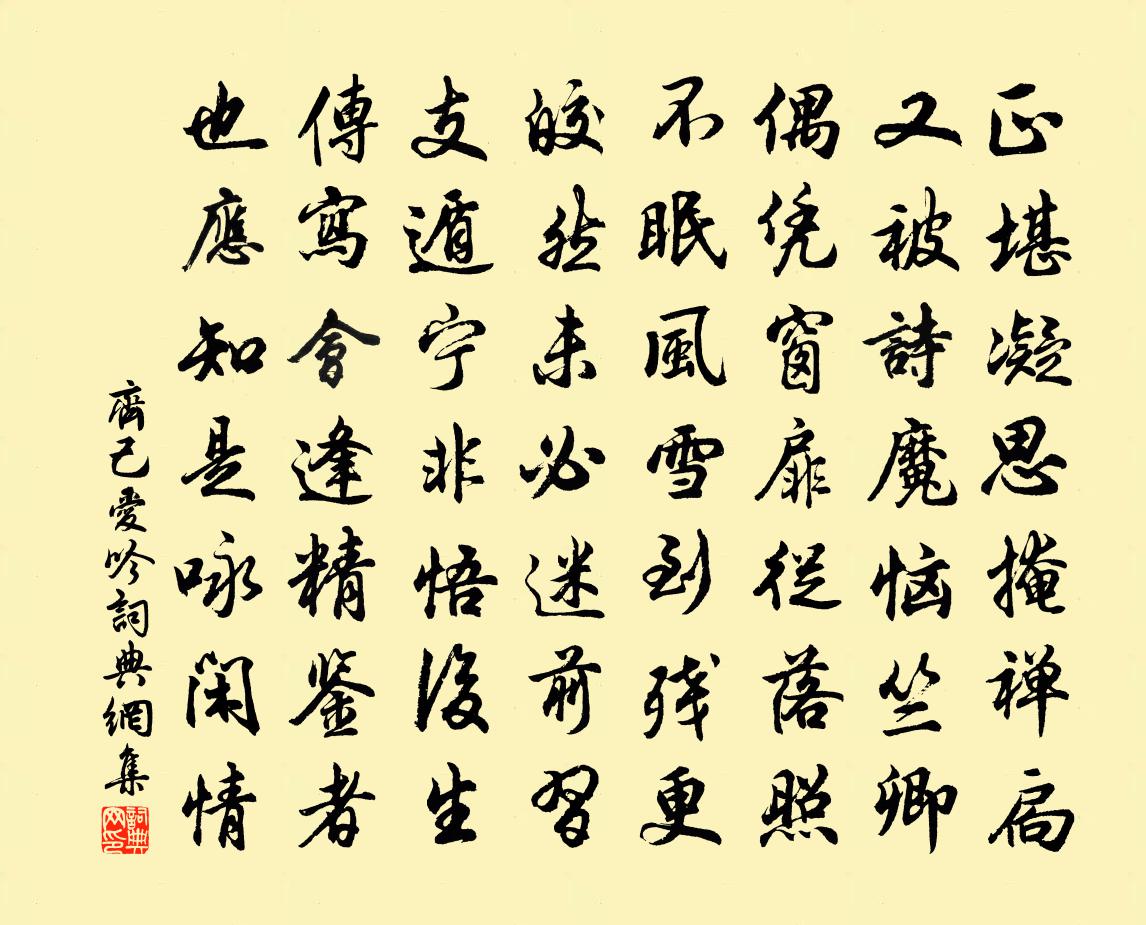 正堪凝思掩禅扃
又被詩魔恼竺卿
偶凭窗扉從落照
不眠風雪到残更
皎然未必迷前習
支遁宁非悟後生
傳寫會逢精鉴者
也應知是咏闲情
齊己愛吟詞典網集
詞典网印